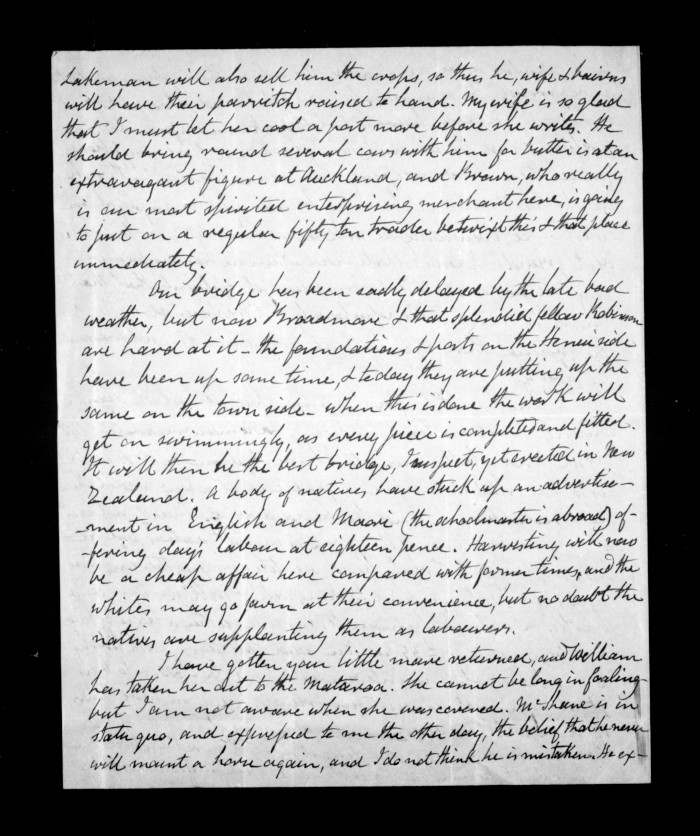 Lakeman will also sell him the crops, so thus he, wife & bairns
will have their parritch raised to hand. My wife is so glad
that I must let her cool a part more before she writes. He
should bring round several cows with him for butter is at an
extravagant figure at Auckland, and Brown, who really
is our most spirited enterprising merchant here, is going
to put on a regular fifty ton trader betwixt this & that place
immediately.
Our bridge has been sadly delayed by the late bad
weather, but now Broadmore & that splendid fellow Robinson
are hard at it - the foundations & parts on the Henui side
have been up some time, & today they are putting up the
same on the town side - when this is done the work will
get on swimmingly, as every piece is completed and fitted.
It will then be the best bridge, I suspect, yet erected in New
Zealand. A body of natives have stuck up an advertise-
-ment in English and Maori (the schoolmaster is abroad) of-
-fering day's labour at eighteen pence. Harvesting will now
be a cheap affair here compared with former times, and the
whites may go farm at their convenience, but no doubt the
natives are supplanting them as labourers.
I have gotten your little mare returned, and William
has taken her out to the Mataroa. She cannot be long in foaling
but I am not aware when she was covered. McShane is in
statu quo, and expressed to me the other day, the belief that he never
will mount a horse again, and I do not think he is mistaken. He ex-